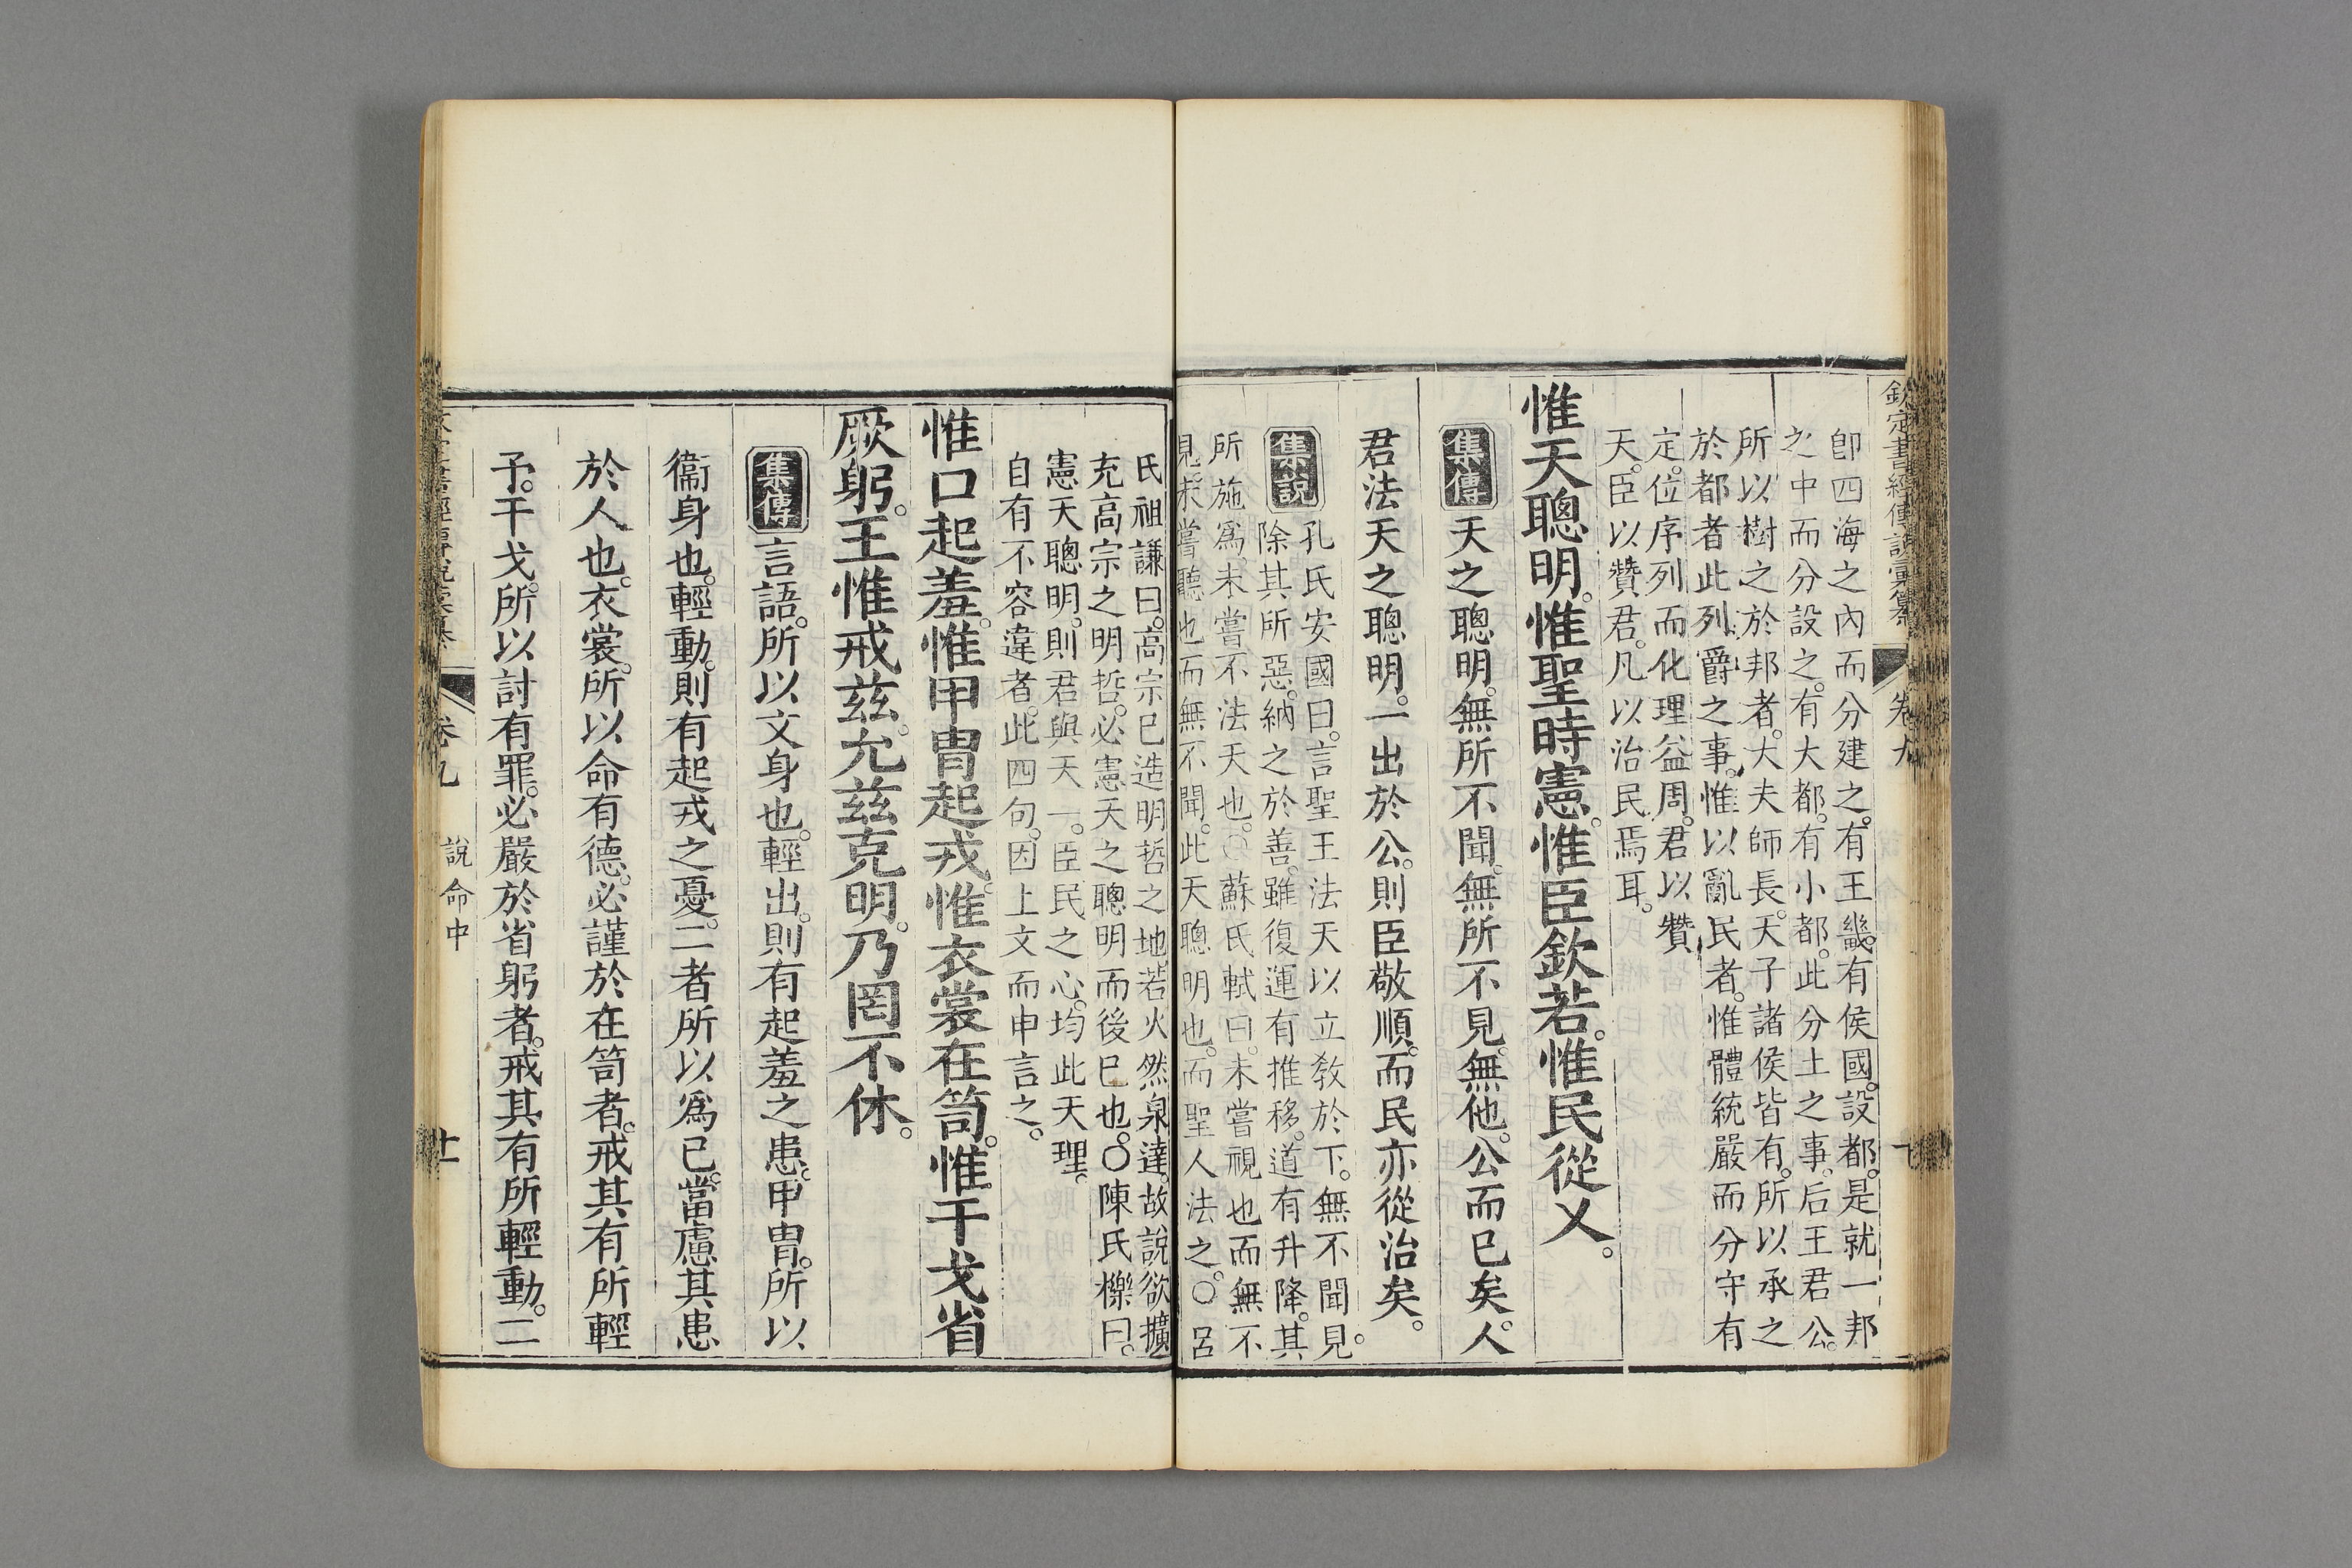 欽定書經傳說彙纂 卷九
卽四海之內而分建之。有王畿。有侯國。設都。是就一邦
之中而分設之。有大都。有小都。此分土之事、后王君公。
所以樹之於邦者。大夫師長。天子諸侯皆有。所以承之
於都者此列爵之事。惟以亂民者。惟體統嚴而分守有
定。位序列而化理益周。君以贊
天。臣以贊君。凡以治民焉耳。
惟天聰明。惟聖時憲。惟臣欽若。惟民從乂。
集傳 天之聰明。無所不聞。無所不見。無他。公而已矣。人
君法天之聰明。一出於公。則臣敬順。而民亦從治矣。
集說 孔氏安國曰。言聖王法天以立敎於下。無不聞見。
除其所惡。納之於善。雖復運有推移。道有升降。其
所施爲。未嘗不法天也。○蘇氏軾曰。未嘗視也而無不
見。未嘗聽也而無不聞。此天聰明也。而聖人法之。○呂
氏祖謙曰。高宗已造明哲之地。若火然泉達。故說欲擴
充高宗之明哲。必憲天之聰明而後已也。○陳氏櫟曰。
憲天聰明。則君與天一。臣民之心。均此天理。
自有不容違者。此四句。因上文而申言之。
惟口起羞。惟甲冑起戎。惟衣裳在笥。惟干戈省
厥躬。王惟戒茲。允茲克明。乃罔不休。
集傳 言語。所以文身也。輕出。則有起羞之患。甲冑。所以
衞身也。輕動。則有起戎之憂。二者所以爲已。當慮其患
於人也。衣裳。所以命有德。必謹於在笥者。戒其有所輕
予。干戈。所以討有罪。必嚴於省躬者。戒其有所輕動。二
卷九 說命中 十一